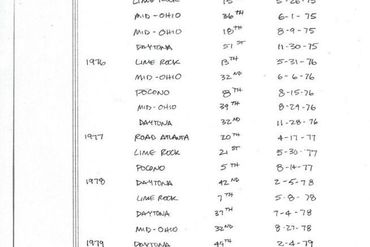 LIME ROCK 15 5-26-75
MID-OHIO 36TH 6-1-75
MID-OHIO 18TH 8-9-75
DAYTONA 51ST 11-30-75
1976 LIME ROCK 13TH 5-31-76
MID-OHIO 32ND 6-6-76
POCONO 8TH 8-15-76
MID-OHIO 39TH 8-29-76
DAYTONA 32ND 11-28-76
1977 ROAD ATLANTA 20TH 4-17-77
LIME ROCK 21ST 5-30-77
POCONO 5TH 8-14-77
1978 DAYTONA 42ND 2-5-78
LIME ROCK 7TH 5-8-78
DAYTONA 37TH 7-4-78
MID-OHIO 32ND 8-27-78
1979 DAYTONA 2-4-79